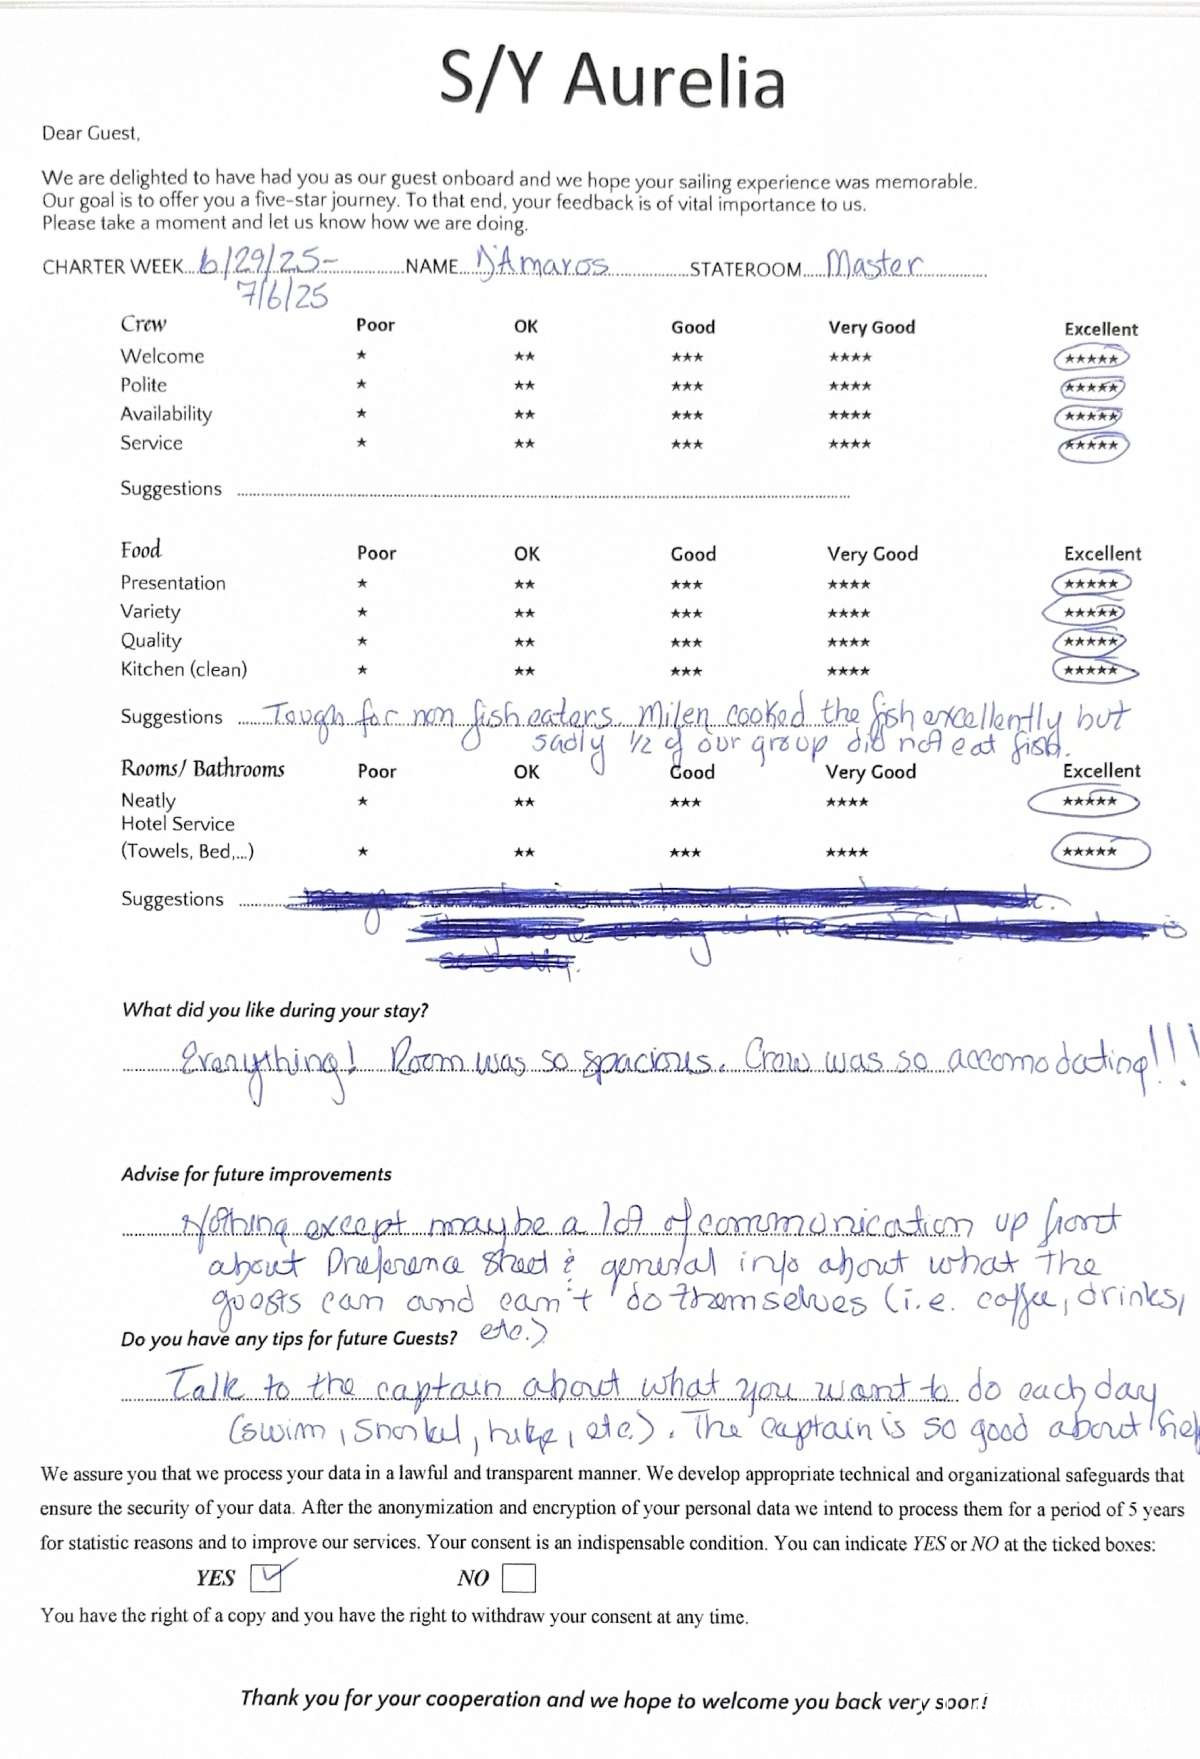 S/Y Aurelia
Dear Guest,
We are delighted to have had you as our guest onboard and we hope your sailing experience was memorable.
Our goal is to offer you a five-star journey. To that end, your feedback is of vital importance to us.
Please take a moment and let us know how we are doing.
CHARTER WEEK 6/29/25- NAME D'Amaros STATEROOM Master
7/6/25
Crew Poor OK Good Very Good Excellent
Welcome ★ ★★ ★★★ ★★★★ ★★★★★
Polite ★ ★★ ★★★ ★★★★ ★★★★★
Availability ★ ★★ ★★★ ★★★★ ★★★★★
Service ★ ★★ ★★★ ★★★★ ★★★★★
Suggestions
Food Poor OK Good Very Good Excellent
Presentation ★ ★★ ★★★ ★★★★ ★★★★★
Variety ★ ★★ ★★★ ★★★★ ★★★★★
Quality ★ ★★ ★★★ ★★★★ ★★★★★
Kitchen (clean) ★ ★★ ★★★ ★★★★ ★★★★★
Suggestions Tough for non fish eaters. Milen cooked the fish excellently but
sadly 1/2 of our group did not eat fish.
Rooms/ Bathrooms Poor OK Good Very Good Excellent
Neatly ★ ★★ ★★★ ★★★★ ★★★★★
Hotel Service
(Towels, Bed,...) ★ ★★ ★★★ ★★★★ ★★★★★
Suggestions
What did you like during your stay?
Everything! Room was so spacious. Crew was so accomodating!!!
Advise for future improvements
Nothing except maybe a lot of communication up front
about Preference Sheet & general info about what the
guests can and can't do themselves (i.e. coffee, drinks,
etc.)
Do you have any tips for future Guests?
Talk to the captain about what you want to do each day
(swim, snorkel, hike, etc.). The captain is so good about
We assure you that we process your data in a lawful and transparent manner. We develop appropriate technical and organizational safeguards that
ensure the security of your data. After the anonymization and encryption of your personal data we intend to process them for a period of 5 years
for statistic reasons and to improve our services. Your consent is an indispensable condition. You can indicate YES or NO at the ticked boxes:
YES NO
You have the right of a copy and you have the right to withdraw your consent at any time.
Thank you for your cooperation and we hope to welcome you back very soon!